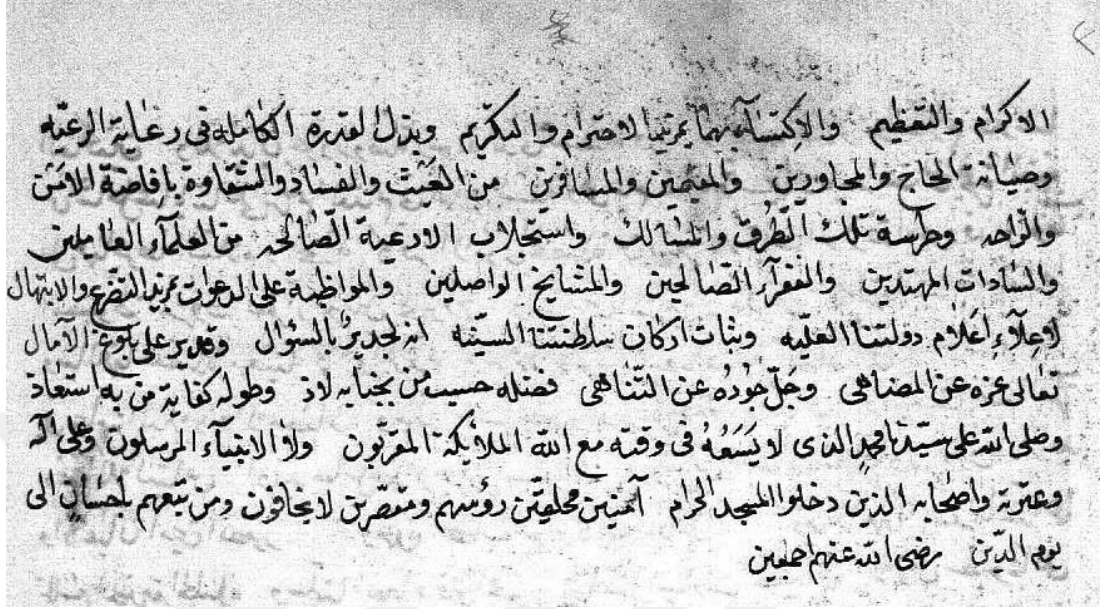 الاكرام والتعظيم والاكتساء بهما بمزيد الاحترام والتكريم وبذل القدرة الكاملة فى رعاية الرعيّه
وصيانة الحاج والمجاورين والمقيمين والمسافرين من العبث والفساد والشقاوة بافاضة الامن
والراحه وحراسة تلك الطرق والمسالك واستجلاب الادعية الصّالحه من العلمآء العاملين
والسّادات المهتدين والفقرآء الصّالحين والمشايخ الواصلين والمواظبة على الدعوات بمزيد التضرع والابتهال
لاعلآءِ اعلام دولتنا العليّه وثبات اركان سلطنتنا السنيّه انه لجديرٌ بالسئوال وقدير على بلوغ الآمال
تعالى عزه عن المضاهى وجَلّ جُودُه عن التّناهى فضله حسيب من بجنابه لاذ وطوله كفاية من به استعاذ
وصلى الله على سيّدنا محمدٍ الذى لا يَسَعُهُ فى وقته مع الله الملائكة المقرّبون ولا الانبيآء المرسلون وعلى آله
وعترته واصحابه الذين دخلوا المسجد الحرام آمنين محلّقين رؤسهم ومقصّرين لا يخافون ومن تبعهم باحسانٍ الى
يوم الدّين رضى الله عنهم اجمعين